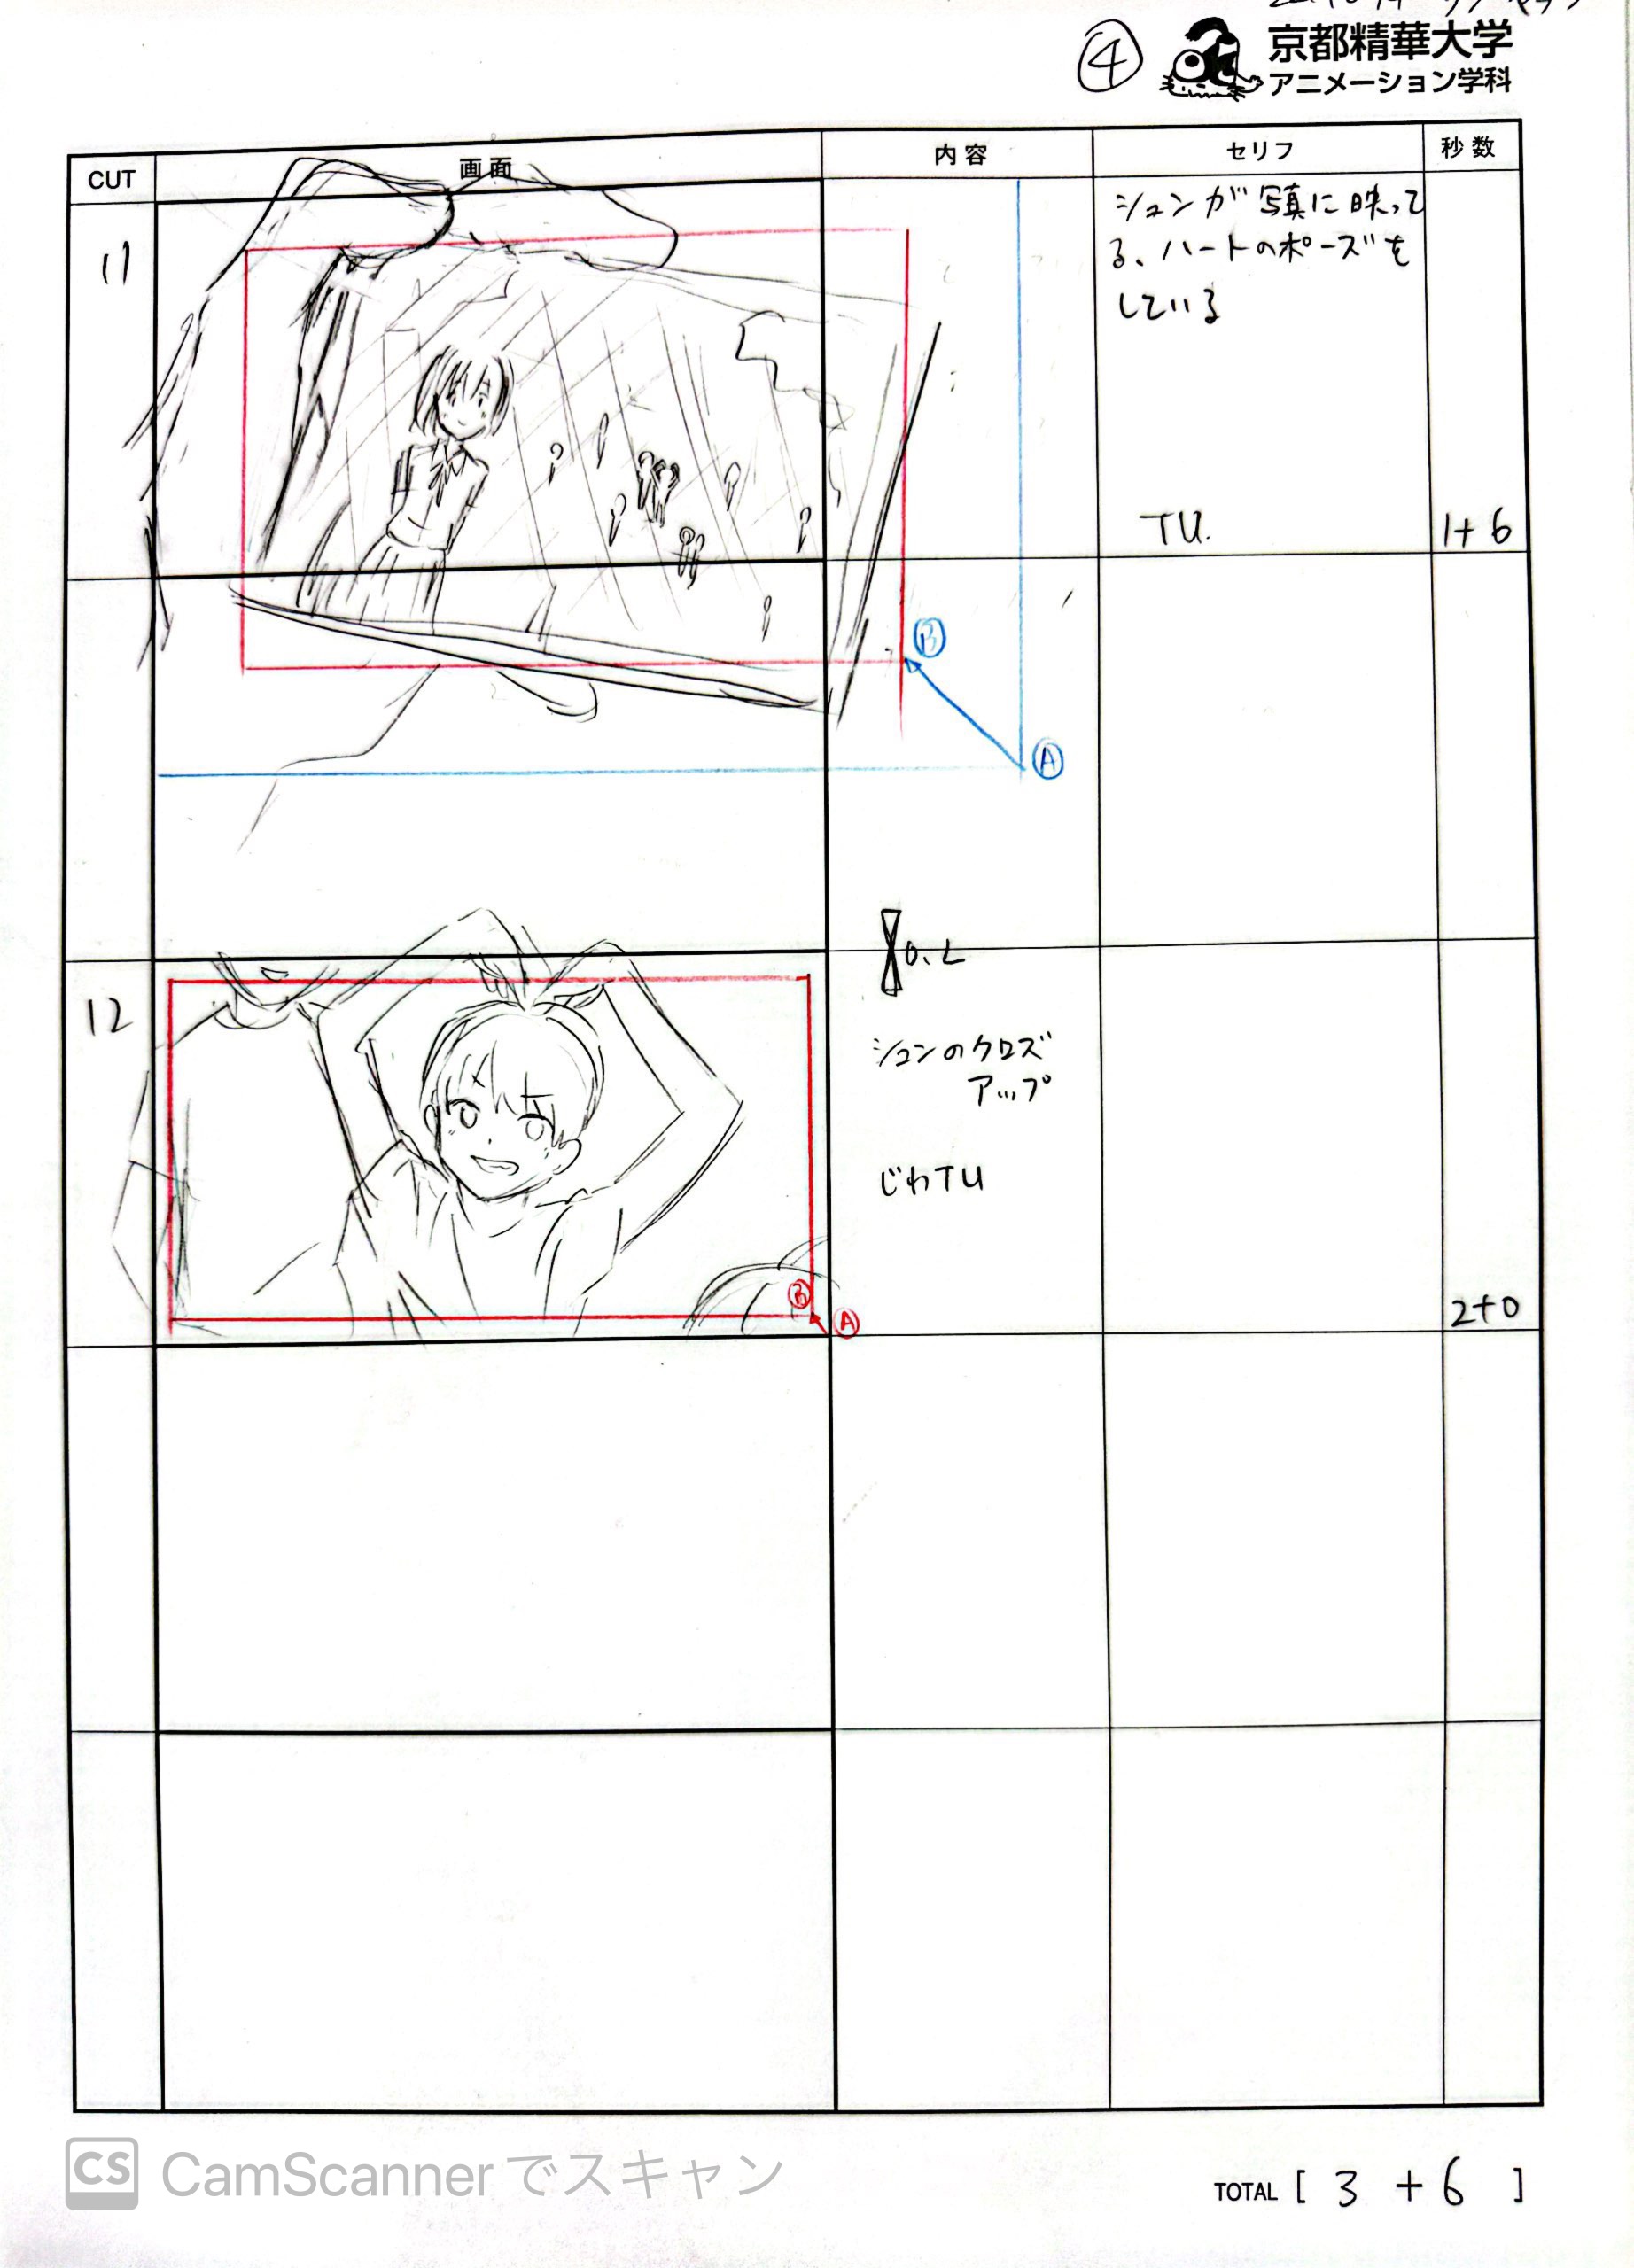 ④
京都精華大学
アニメーション学科
CUT
画面
内容
セリフ
秒数
11
シュンが写真に映って
る、ハートのポーズを
している
TU.
1+6
B
A
O.L
12
シュンのクロズ
アップ
じわTU
B
A
2+0
CS CamScannerでスキャン
TOTAL [ 3 +6 ]